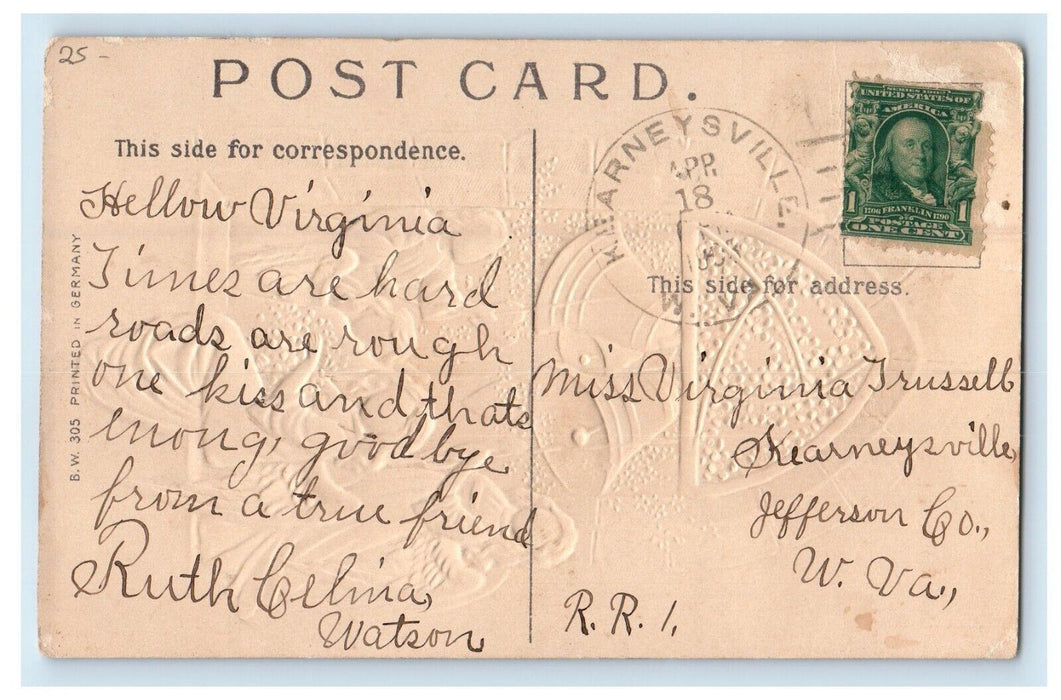 25-
POST CARD.
This side for correspondence.
Hellow Virginia
Times are hard
roads are rough
one kiss and thats
enong, goodbye
from a true friend
Ruth Celina,
Watson
B. W. 305 PRINTED IN GERMANY
KEARNEYSVILLE.
APR.
18
W. VA.
SERIES 1902
UNITED STATES OF
AMERICA
1 1706 FRANKLIN 1790 1
POSTAGE
ONE CENT
This side for address.
Miss Virginia Trussell
Kearneysville,
Jefferson Co.,
W. Va.,
R. R. 1,